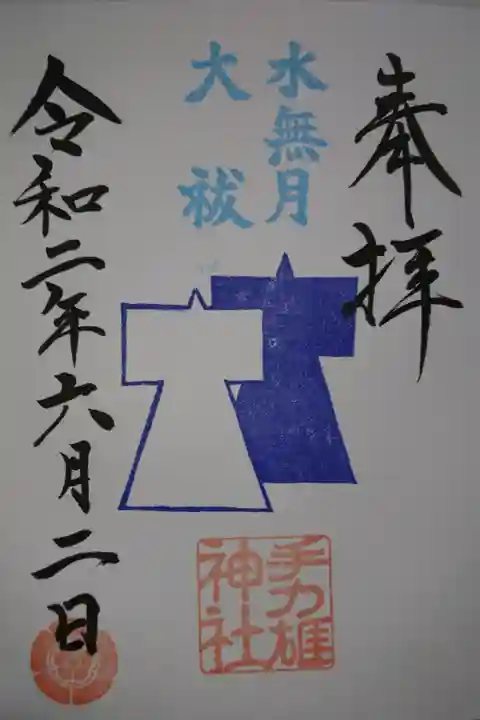 奉拝
水無月
大祓
手力雄
神社
令和二年六月二日